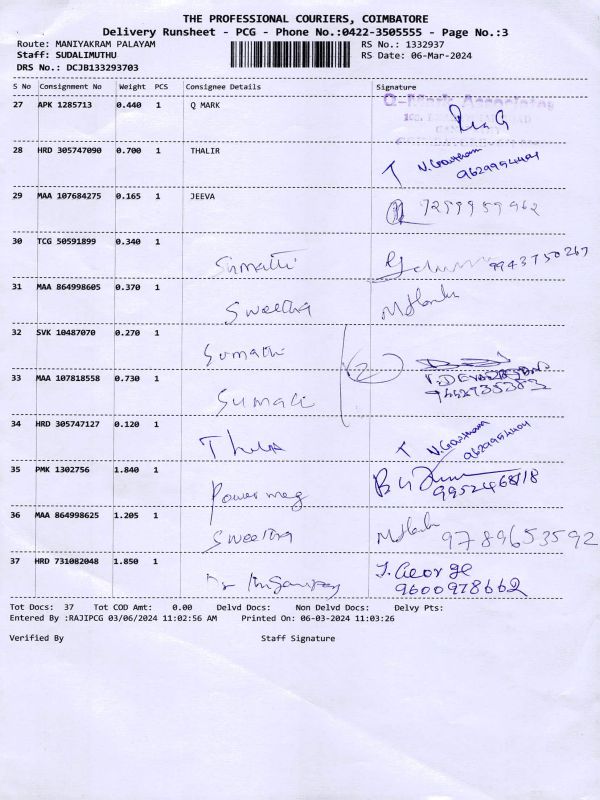 THE PROFESSIONAL COURIERS, COIMBATORE
Delivery Runsheet - PCG - Phone No.:0422-3505555 - Page No.:3
Route: MANIYAKRAM PALAYAM RS No.: 1332937
Staff: SUDALIMUTHU RS Date: 06-Mar-2024
DRS No.: DCJB133293703
S No Consignment No Weight PCS Consignee Details Signature
27 APK 1285713 0.440 1 Q MARK Q-Mark Associates
28 HRD 305747090 0.700 1 THALIR N. Gowtham
9629954404
29 MAA 107684275 0.165 1 JEEVA 7299959962
30 TCG 50591899 0.340 1 Sumathi 9943750267
31 MAA 864998605 0.370 1 Swetha
32 SVK 10487070 0.270 1 Sumathi (2)
33 MAA 107818558 0.730 1 Sumati
34 HRD 305747127 0.120 1 N. Gowtham
9629954404
35 PMK 1302756 1.840 1 Power meg
36 MAA 864998625 1.205 1 Swetha 9789653592
37 HRD 731082048 1.850 1 J. George
9600978662
Tot Docs: 37 Tot COD Amt: 0.00 Delvd Docs: Non Delvd Docs: Delvy Pts:
Entered By :RAJIPCG 03/06/2024 11:02:56 AM Printed On: 06-03-2024 11:03:26
Verified By Staff Signature